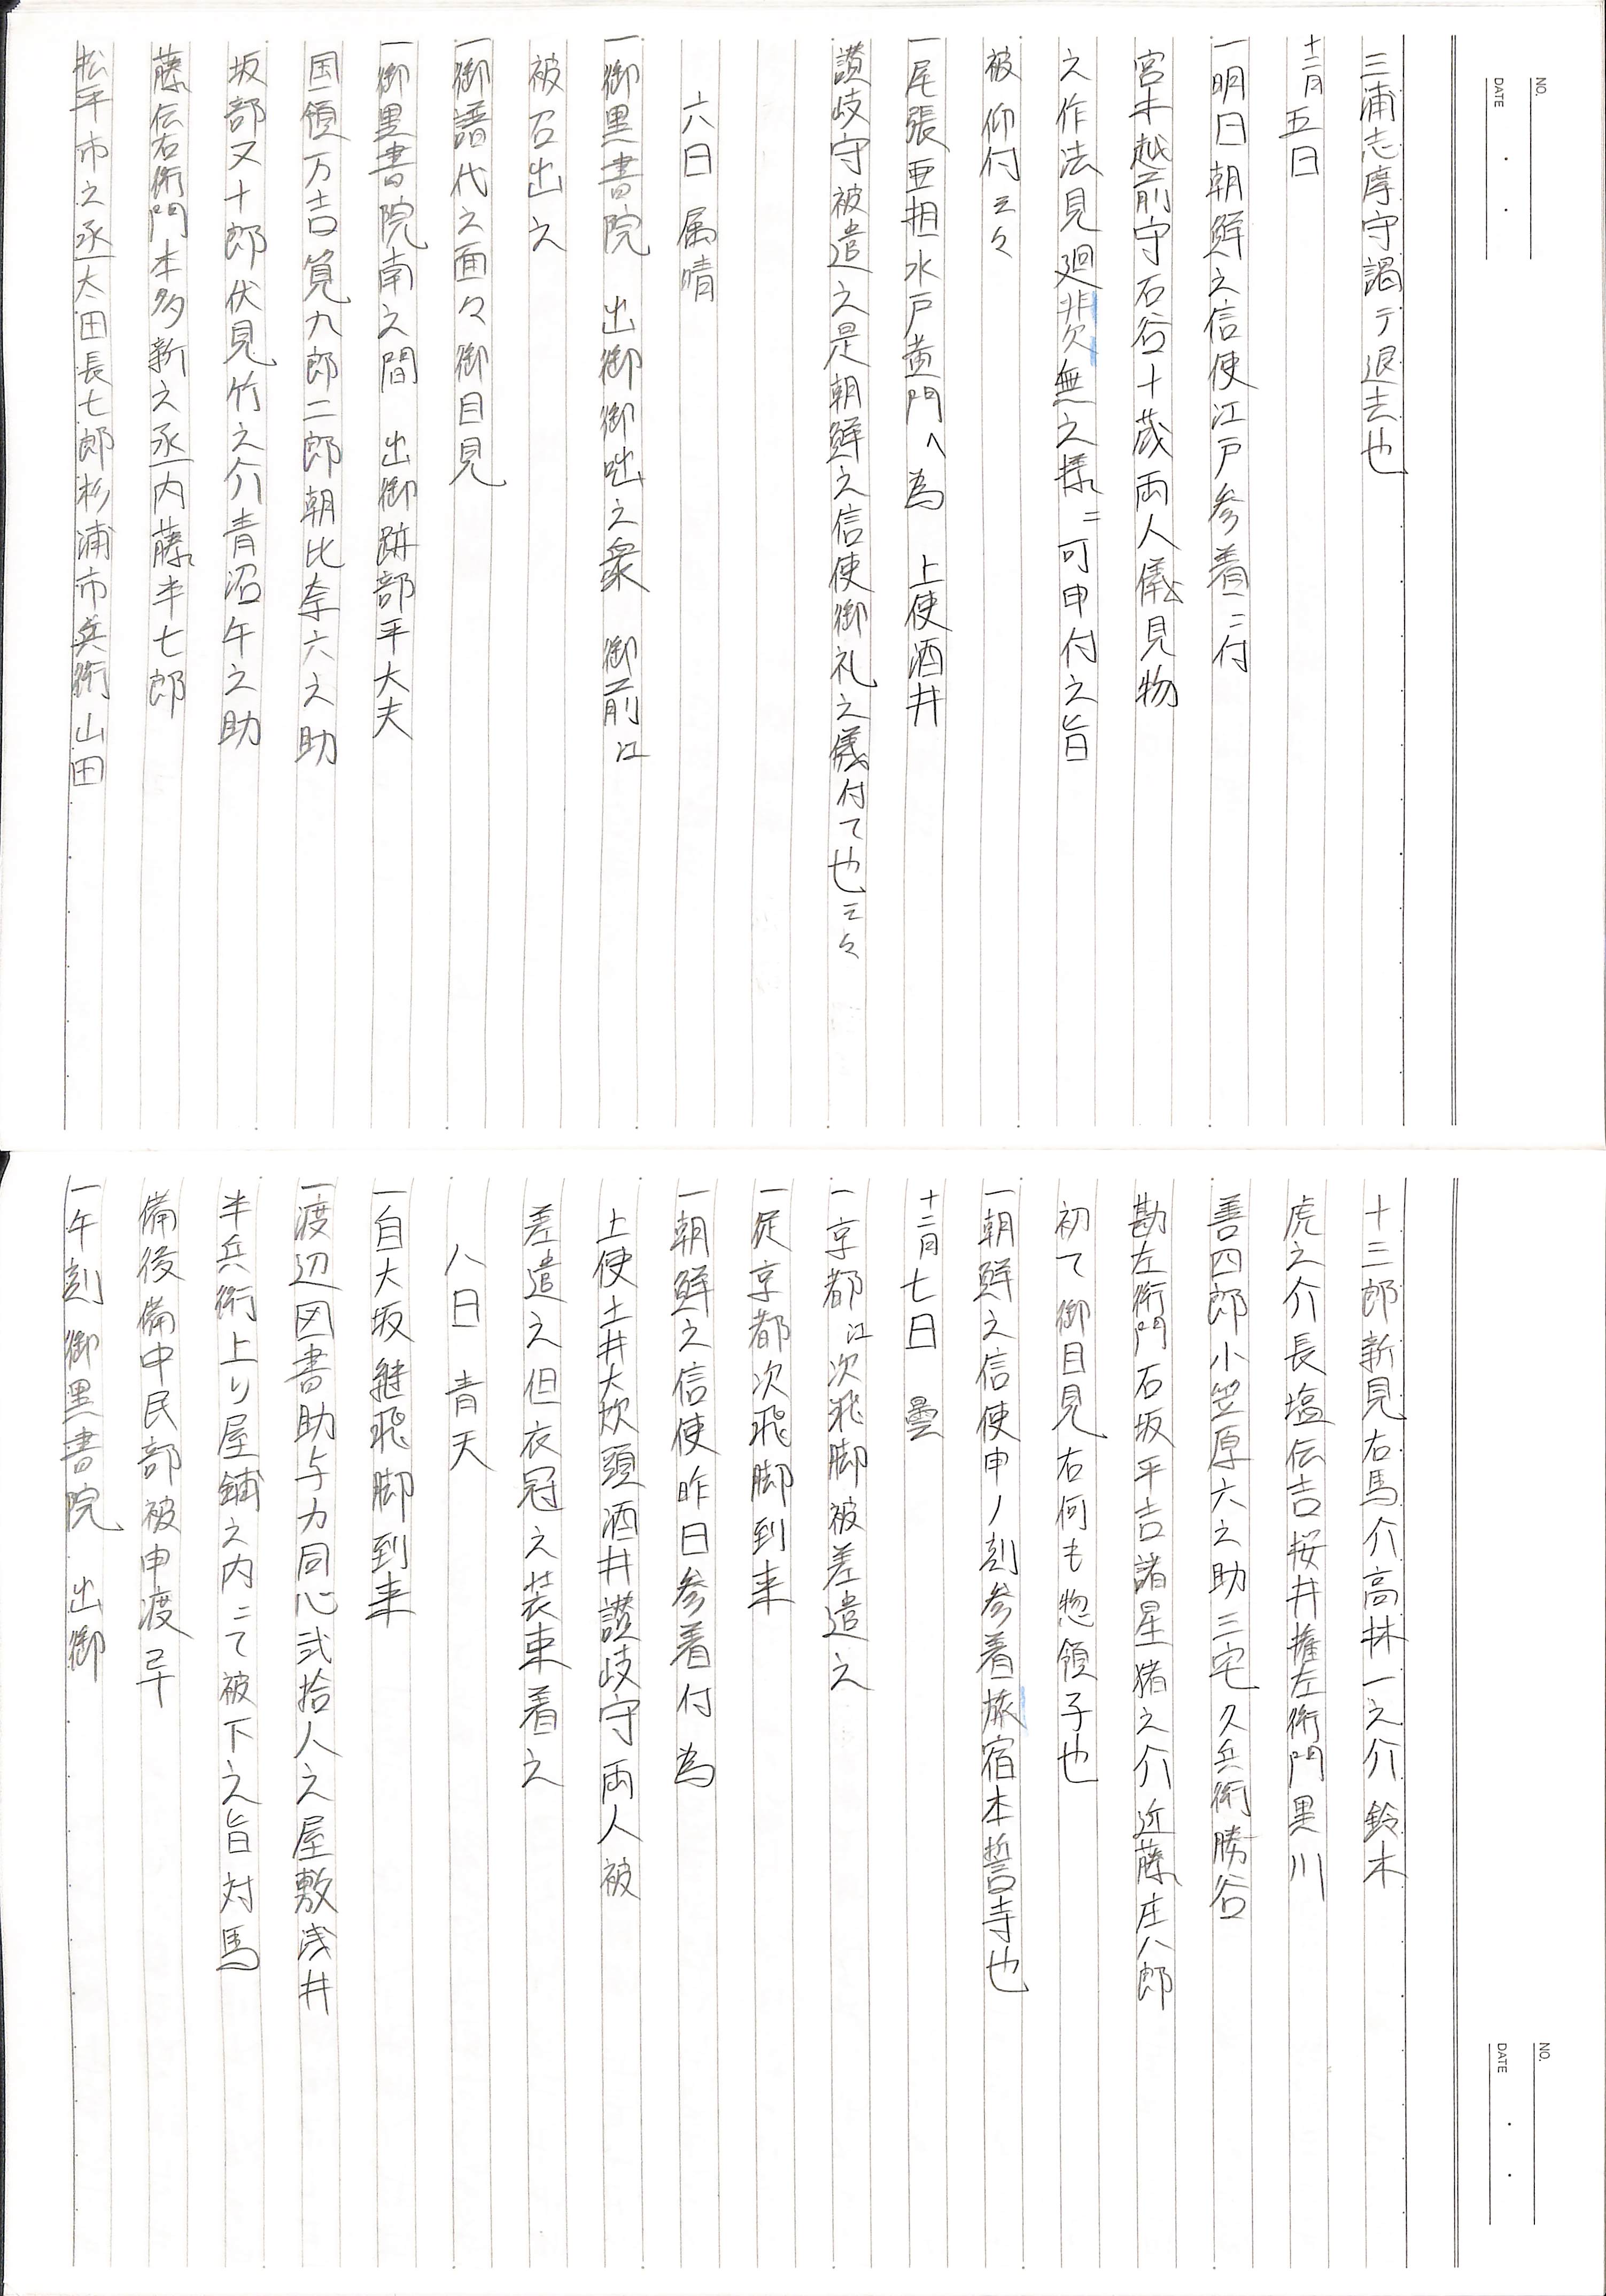 NO.
DATE
三浦志摩守謁テ退去也
十二月五日
一明日朝鮮之信使江戸参着ニ付
宮木越前守石谷十蔵両人儀見物
之作法見廻非欠無之様ニ可申付之旨
被 仰付云々
一尾張亜相水戸黄門へ為 上使酒井
讃岐守被遣之是朝鮮之信使御礼之儀付て也云々
六日 属晴
一御黒書院 出御御咄之衆 御前江
被召出之
一御譜代之面々御目見
一御黒書院南之間 出御跡部平大夫
国領万吉筧九郎二郎朝比奈六之助
坂部又十郎伏見竹之介青沼午之助
藤伝右衛門本多新之丞内藤半七郎
松平市之丞太田長七郎杉浦市兵衛山田
NO.
DATE
十三郎新見右馬介高林一之介鈴木
虎之介長塩伝吉桜井権左衛門黒川
善四郎小笠原六之助三宅久兵衛勝谷
勘左衛門石坂平吉諸星猪之介近藤庄八郎
初て御目見右何も惣領子也
一朝鮮之信使申ノ刻参着旅宿本誓寺也
十二月七日 曇
一京都江次飛脚被差遣之
一従京都次飛脚到来
一朝鮮之信使昨日参着付為
上使土井大炊頭酒井讃岐守両人被
差遣之但衣冠之装束着之
八日 青天
一自大坂継飛脚到来
一渡辺図書助与力同心弐拾人之屋敷浅井
半兵衛上り屋鋪之内ニて被下之旨対馬
備後備中民部被申渡之
一午刻御黒書院 出御